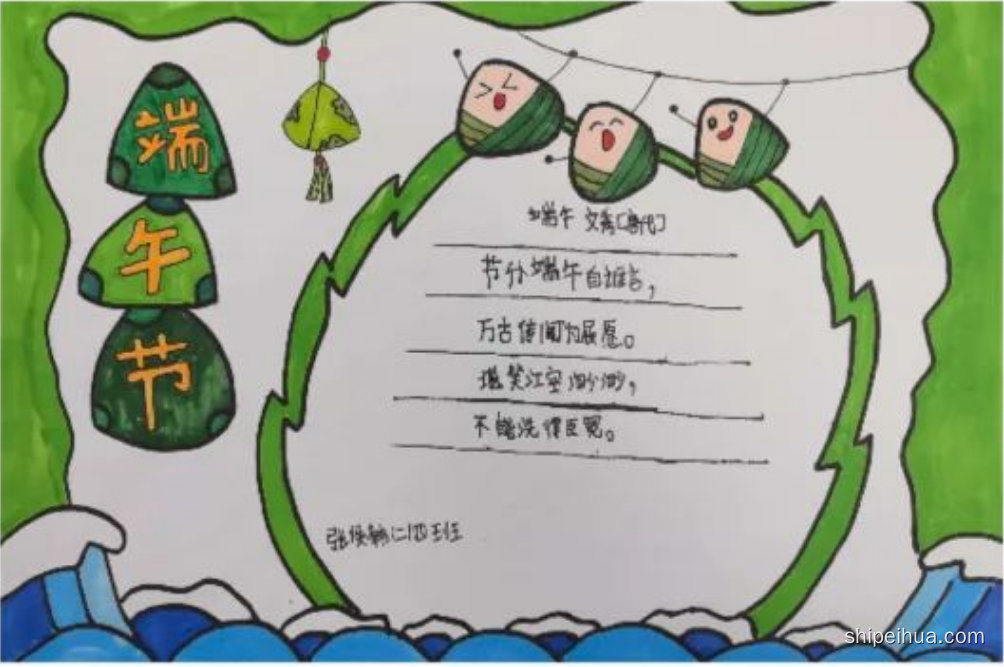 端
午
节
端午 文秀[唐代]
节分端午自谁言，
万古传闻为屈原。
堪笑江空渺渺，
不能洗得直臣冤。
二四班
shipeihua.com